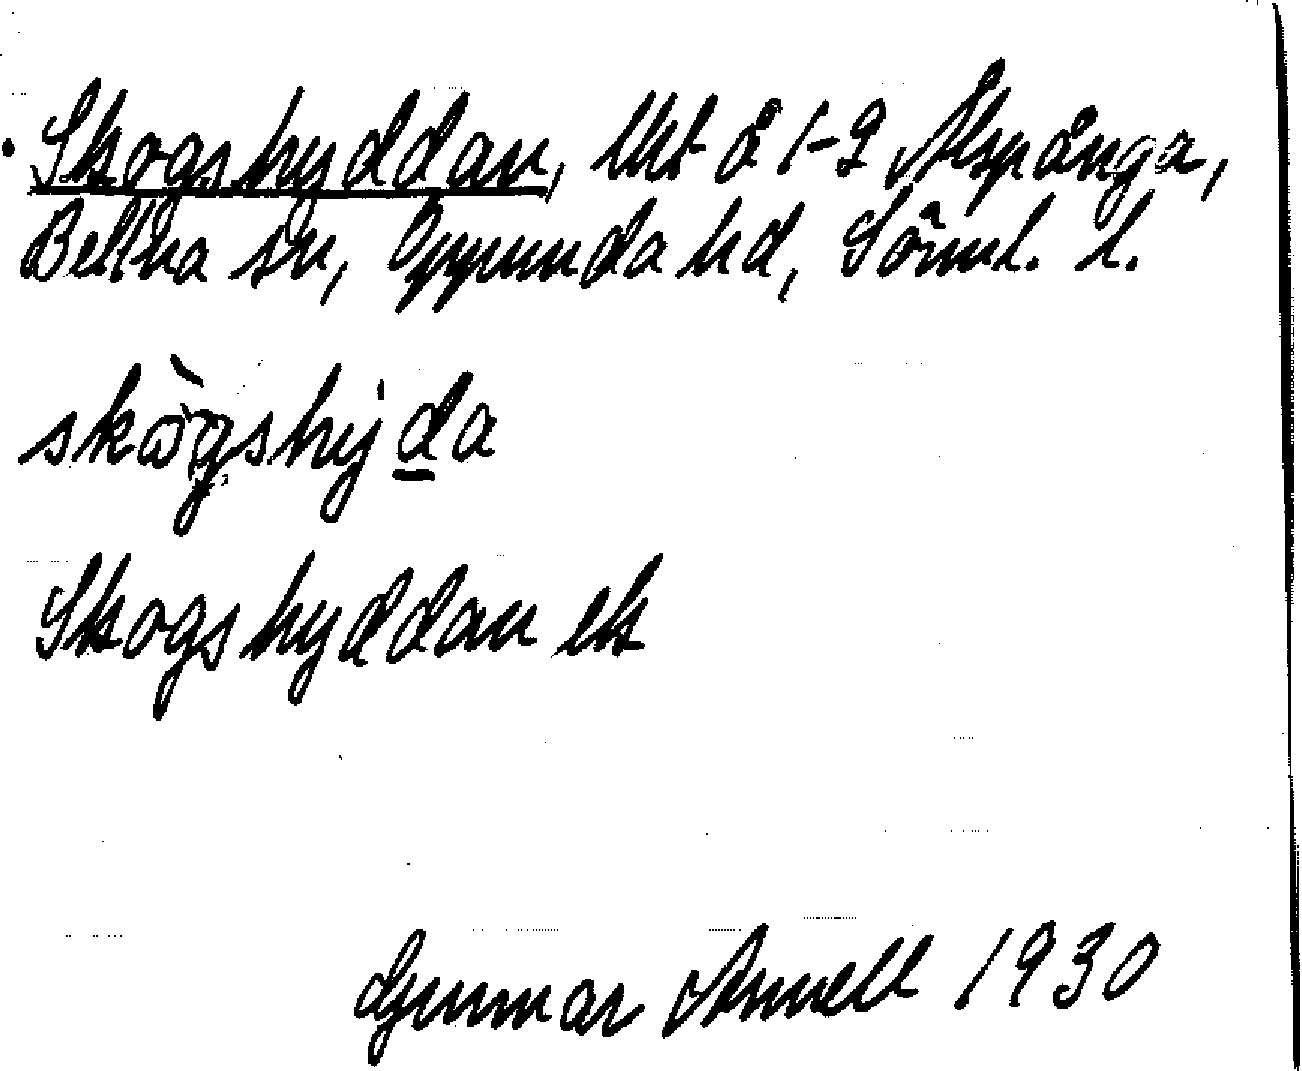 Skogshyddan, lht å 1-2 Alspånga,
Bettna sn, Oppunda hd, Söml. l.
skògshy̍da
Skogshyddan ek
Gunnar Annell 1930